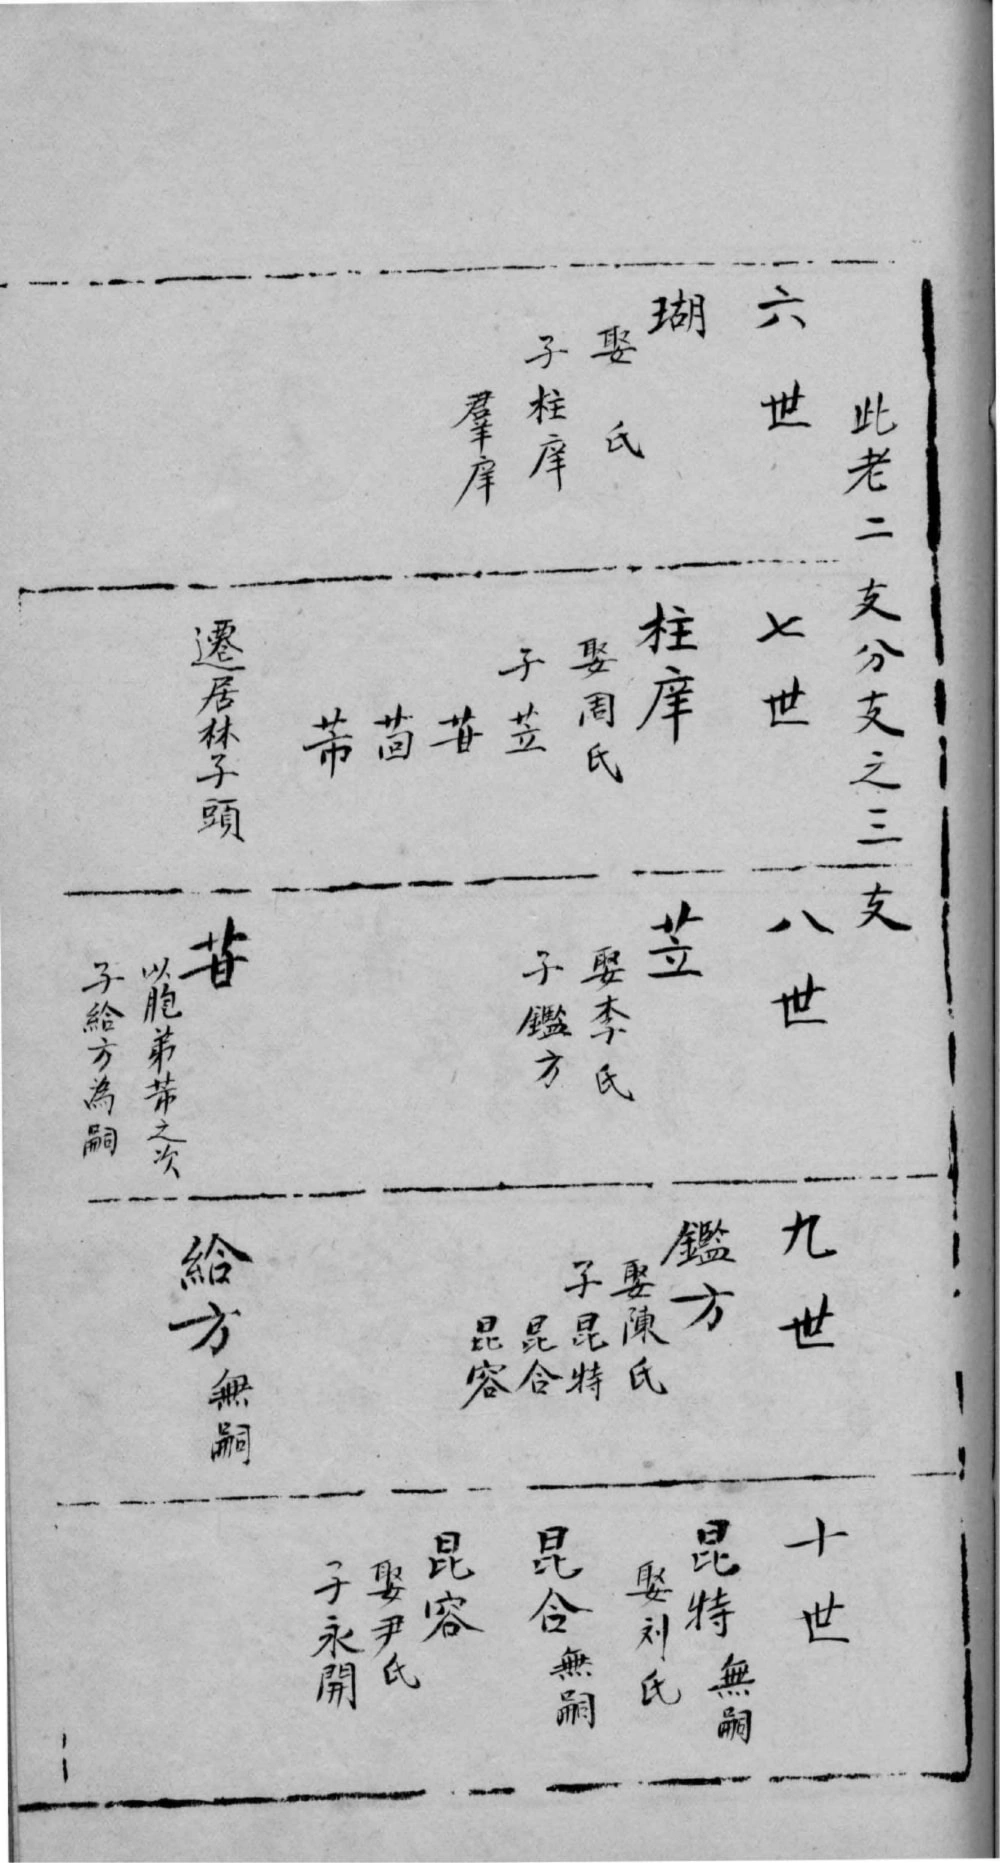 此老二支分支之三支
六世
瑚
娶 氏
子柱庠
羣庠
七世
柱庠
娶周氏
子苙
苷
茴
芾
遷居林子頭
八世
苙
娶李氏
子鑑方
苷
以胞弟芾之次
子給方為嗣
九世
鑑方
娶陳氏
子昆特
昆合
昆容
給方 無嗣
十世
昆特 無嗣
娶刘氏
昆合 無嗣
昆容
娶尹氏
子永開